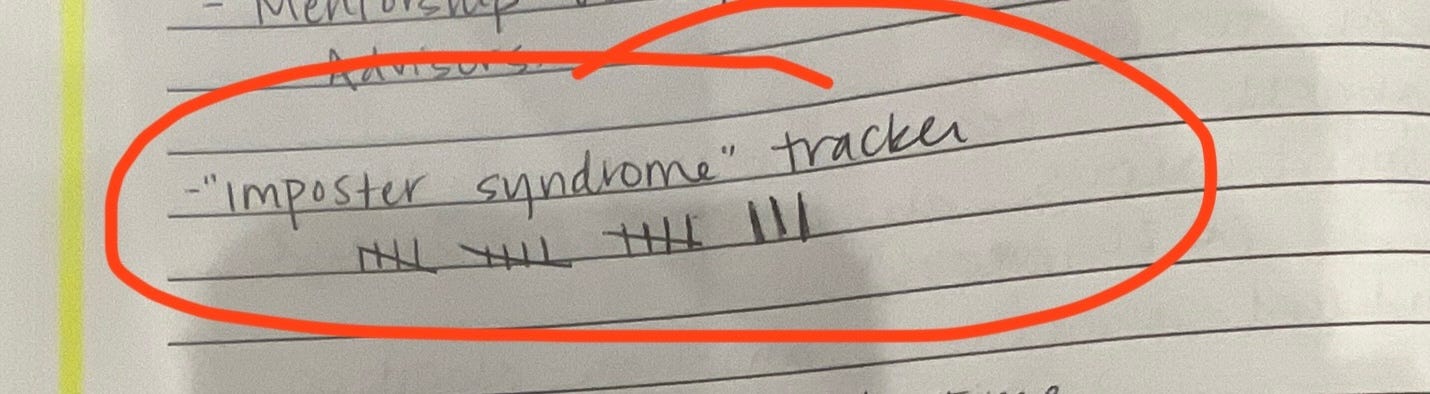 - Mentorship
Advisors.
-"imposter syndrome" tracker